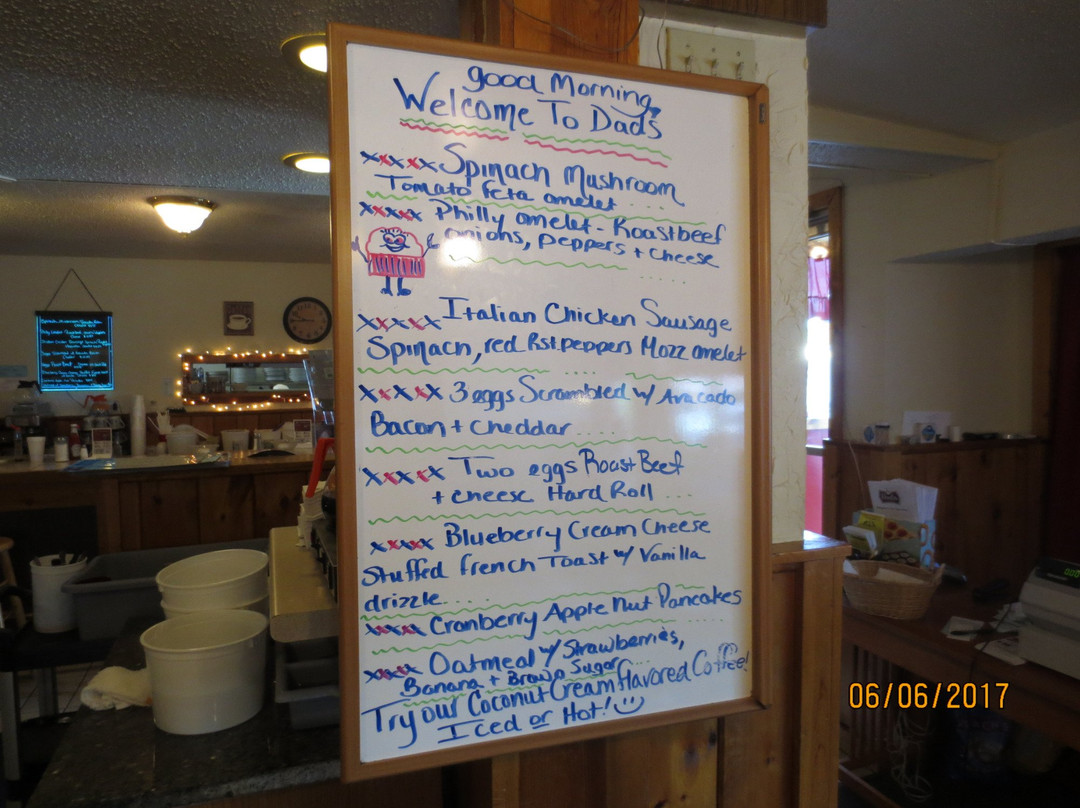 good Morning,
Welcome To Dad's
xxxxx Spinach Mushroom
Tomato feta omelet ....
xxxxx Philly omelet - Roastbeef
onions, peppers + cheese
....
xxxxx Italian Chicken Sausage
Spinach, red Rst.peppers Mozz omelet
....
xxxxx 3 eggs Scrambled w/ Avacado
Bacon + cheddar ....
xxxxx Two eggs Roast Beef
+ cheese Hard Roll ....
xxxx Blueberry Cream Cheese
Stuffed french Toast w/ Vanilla
drizzle....
xxxx Cranberry Apple Nut Pancakes
xxxx Oatmeal w/ Strawberries,
Banana + Brown Sugar...
Try our Coconut Cream flavored Coffee!
Iced or Hot!
06/06/2017